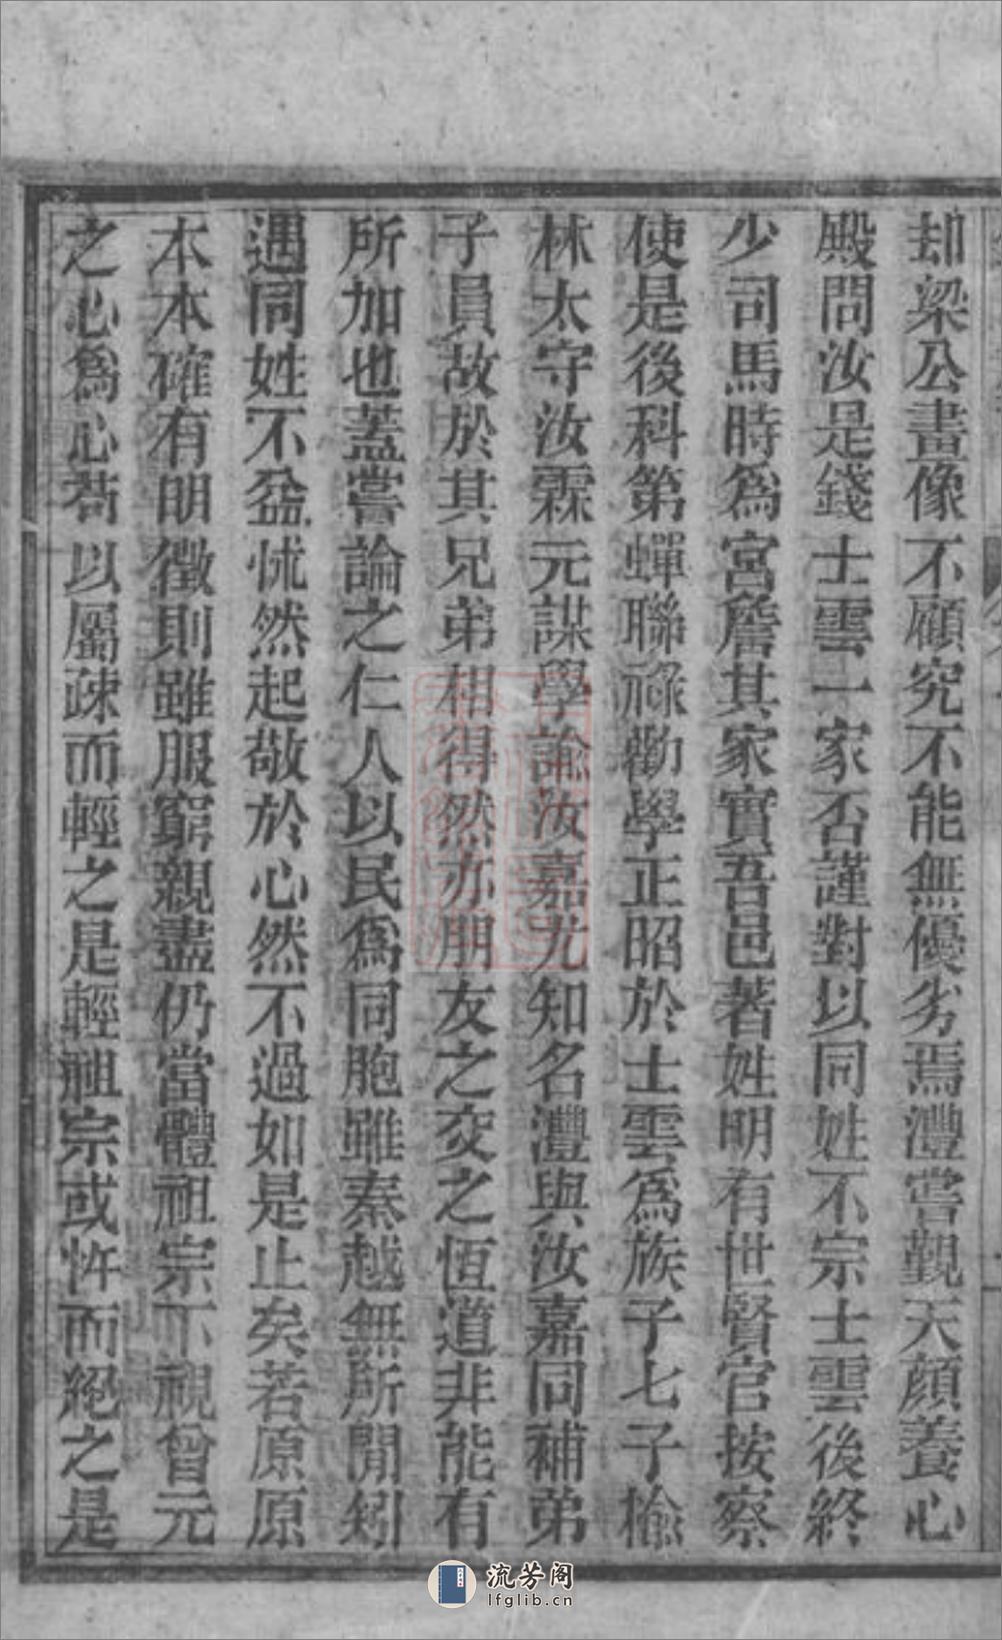 却梁公畫像不顧究不能無優劣焉灃嘗覲天顏養心
殿問汝是錢士雲一家否謹對以同姓不宗士雲後終
少司馬時爲宮詹其家實吾邑著姓明有世賢官按察
使是後科第蟬聯祿勸學正昭於士雲爲族子七子棆
林太守汝霖元謀學諭汝嘉尤知名灃與汝嘉同補弟
子員故於其兄弟相得然亦朋友之交之恆道非能有
所加也蓋嘗論之仁人以民爲同胞雖秦越無所閒矧
遇同姓不益怵然起敬於心然不過如是止矣若原原
本本確有明徵則雖服窮親盡仍當體祖宗下視曾元
之心爲心若以屬疎而輕之是輕祖宗或忤而絕之是
流芳阁
lfglib.cn